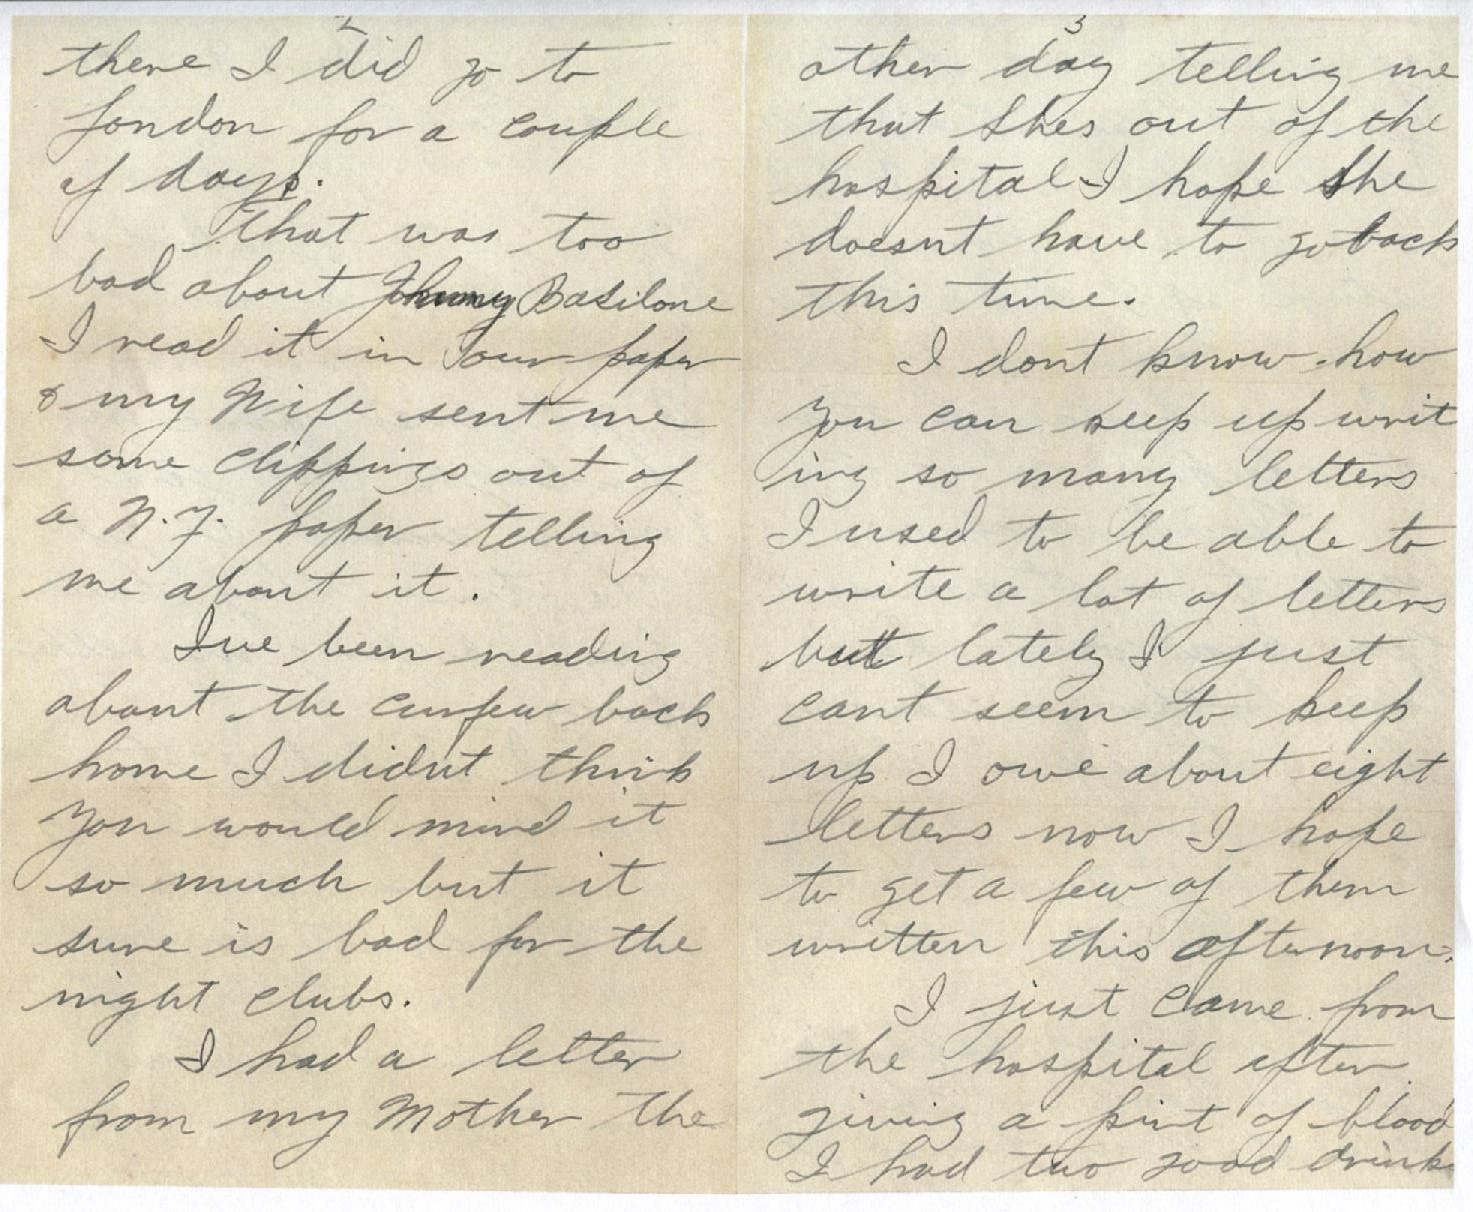 2
there I did go to
London for a couple
of days.
That was too
bad about Johnny Basilone
I read it in our paper
& my Wife sent me
some clippings out of
a N.Y. paper telling
me about it.
Ive been reading
about the curfew back
home I didnt think
you would mind it
so much but it
sure is bad for the
night clubs.
I had a letter
from my Mother the
3
other day telling me
that shes out of the
hospital I hope she
doesnt have to go back
this time.
I dont know how
you can keep up writ
ing so many letters
I used to be able to
write a lot of letters
but lately I just
cant seem to keep
up I owe about eight
letters now I hope
to get a few of them
written this afternoon.
I just came from
the hospital after
giving a pint of blood
I had two good drinks